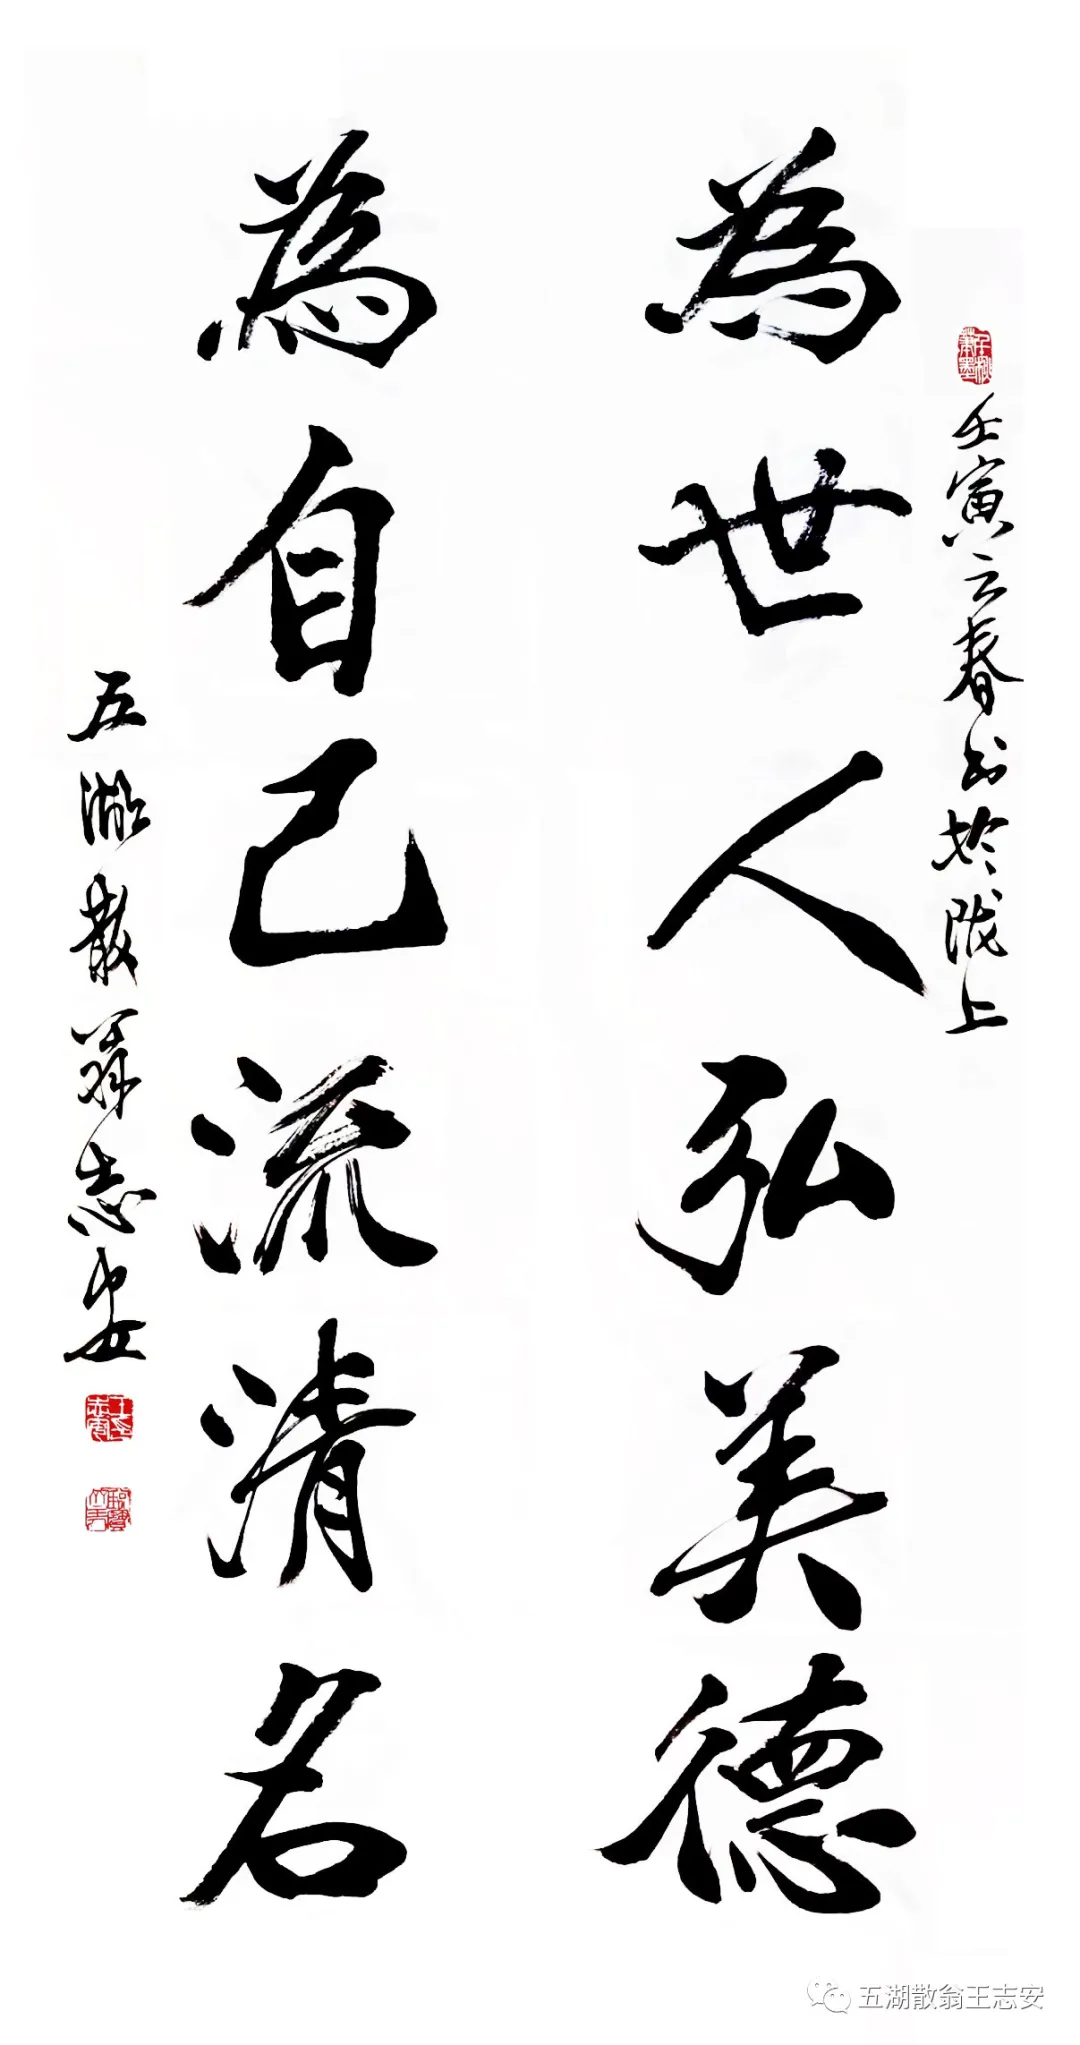 壬寅之春书於陇上
為世人弘美德
為自己流清名
五湖散翁志安
五湖散翁王志安